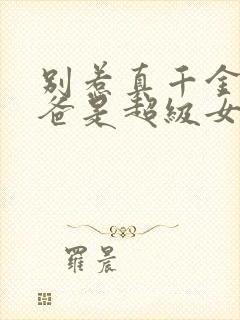 别惹真千金
爸是超级女
羅晨